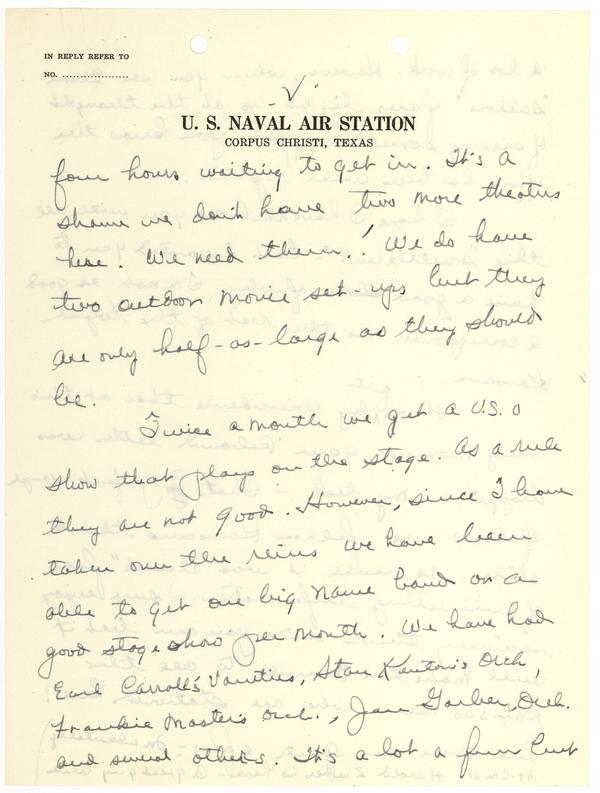 IN REPLY REFER TO
NO. ...................
-V-
U. S. NAVAL AIR STATION
CORPUS CHRISTI, TEXAS
four hours waiting to get in. It's a
shame we don't have two more theatres
here. We need them! We do have
two outdoor movie set-ups but they
are only half-as-large as they should
be.
Twice a month we get a U.S.O
show that plays on the stage. As a rule
they are not good. However, since I have
taken over the reins we have been
able to get one big name band or a
good stage show per month. We have had
Earl Carroll's Vanities, Stan Kenton's Orch,
Frankie Master's Orch., Jan Garber, Orch.
and several others. It's a lot a fun but